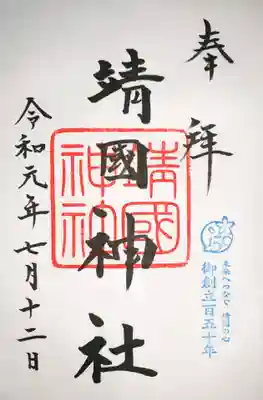 奉拝
靖國神社
靖國神社
未来へつなぐ 靖国の心
御創立百五十年
令和元年七月十二日